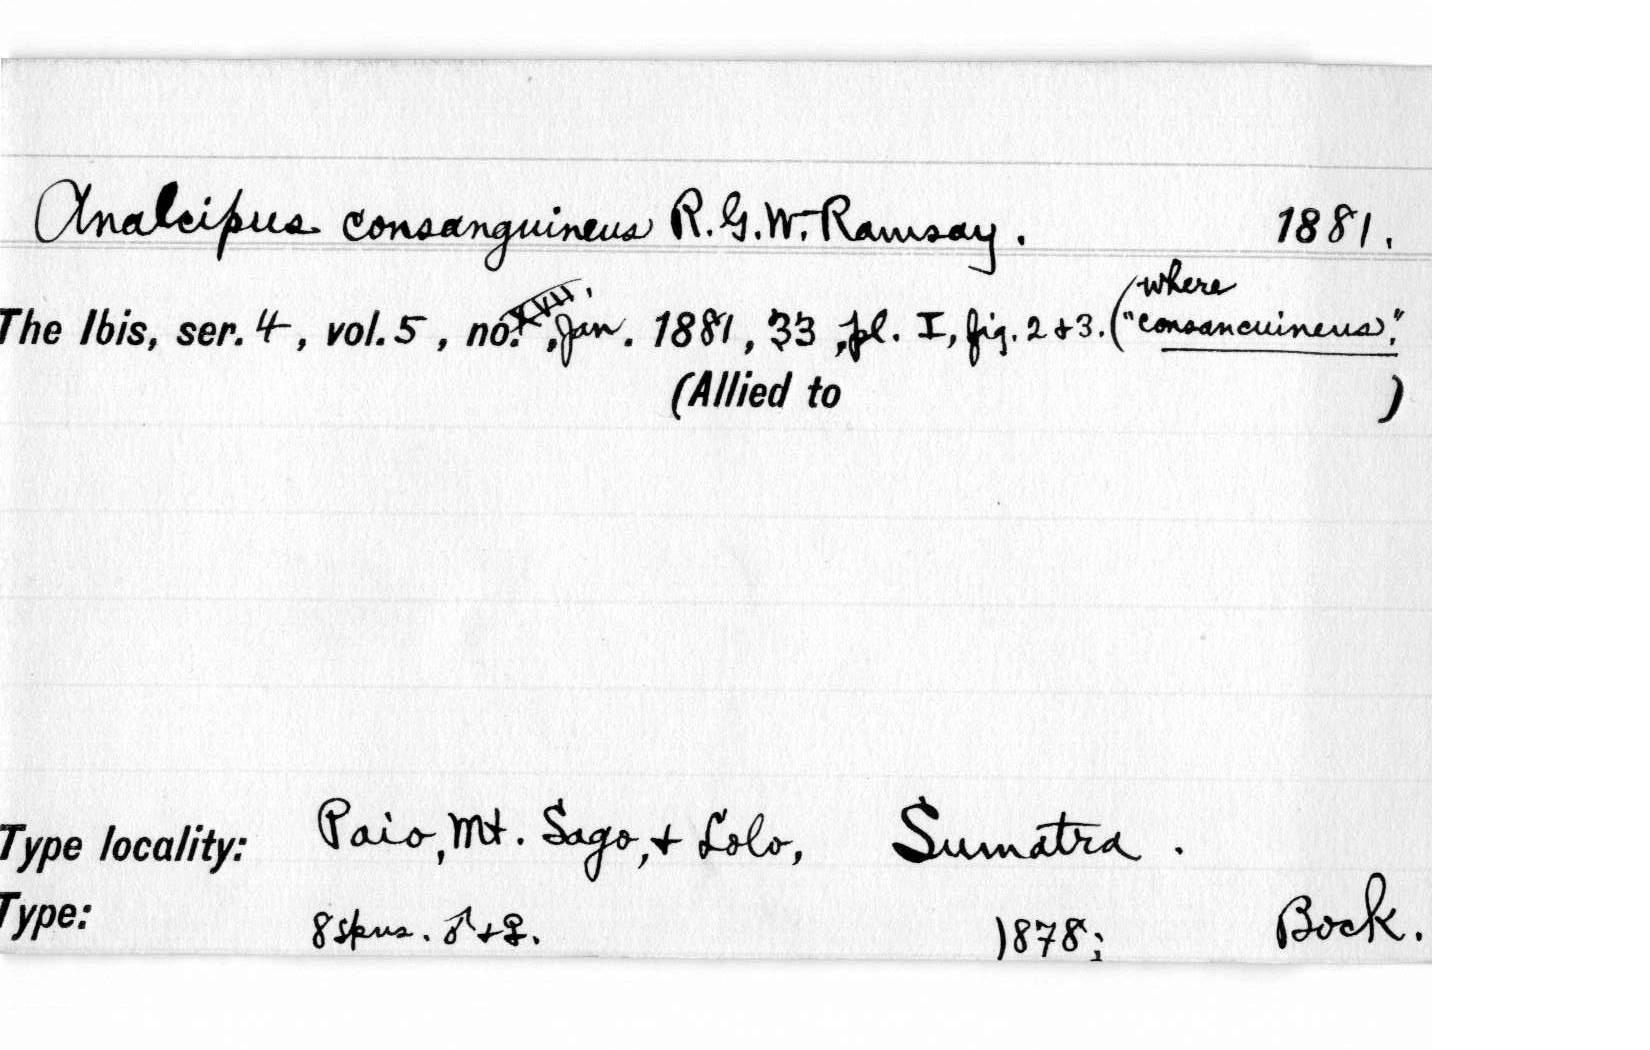 Analcipus consanguineus R.G.W. Ramsay. 1881.
The Ibis, ser. 4, vol. 5, no. XVII, Jan. 1881, 33, pl. I, fig. 2 + 3. (where "consancuineus".
(Allied to )
Type locality: Paio, Mt. Sago, + Lolo, Sumatra.
Type: 8 spns. ♂ + ♀. 1878; Bock.